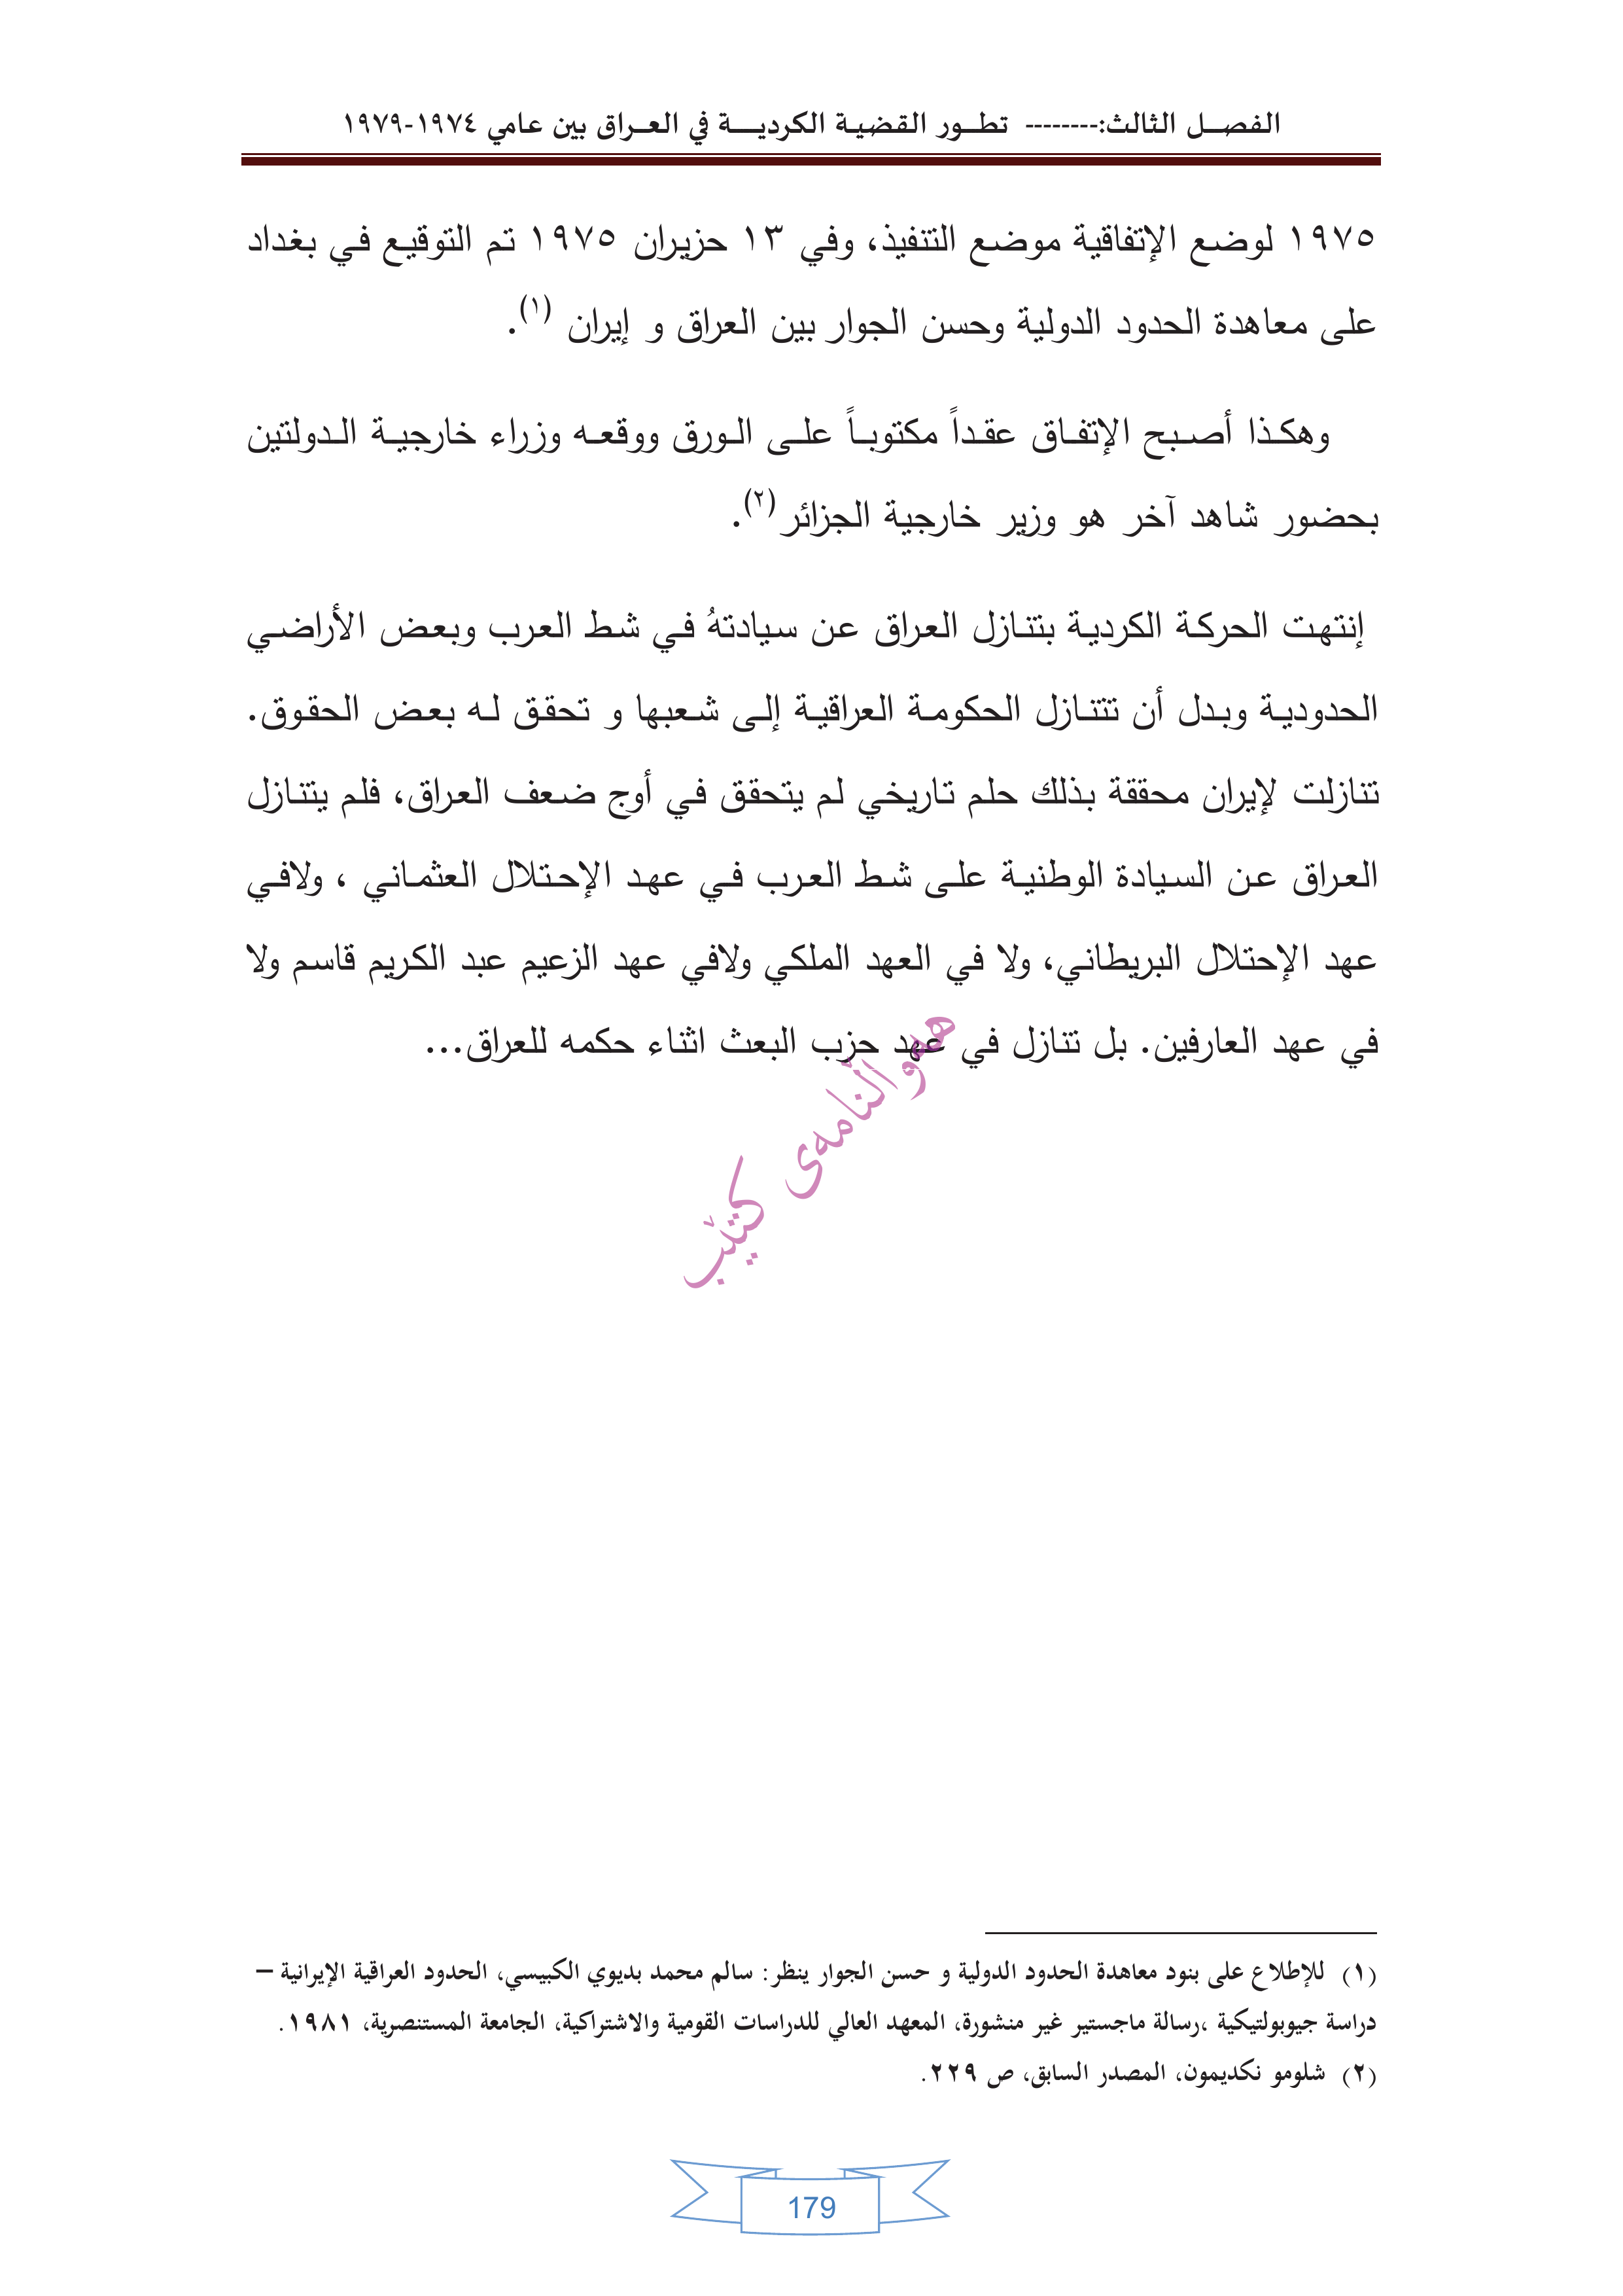 الفصل الثالث:-------- تطور القضية الكردية في العراق بين عامي ١٩٧٤-١٩٧٩
١٩٧٥ لوضع الإتفاقية موضع التنفيذ، وفي ١٣ حزيران ١٩٧٥ تم التوقيع في بغداد
على معاهدة الحدود الدولية وحسن الجوار بين العراق و إيران (١).
وهكذا أصبح الإتفاق عقداً مكتوباً على الورق ووقعه وزراء خارجية الدولتين
بحضور شاهد آخر هو وزير خارجية الجزائر(٢).
إنتهت الحركة الكردية بتنازل العراق عن سيادتهُ في شط العرب وبعض الأراضي
الحدودية وبدل أن تتنازل الحكومة العراقية إلى شعبها و تحقق له بعض الحقوق.
تنازلت لإيران محققة بذلك حلم تاريخي لم يتحقق في أوج ضعف العراق، فلم يتنازل
العراق عن السيادة الوطنية على شط العرب في عهد الإحتلال العثماني ، ولافي
عهد الإحتلال البريطاني، ولا في العهد الملكي ولافي عهد الزعيم عبد الكريم قاسم ولا
في عهد العارفين. بل تنازل في عهد حزب البعث اثناء حكمه للعراق...
هەواڵنامەی کتێب
(١) للإطلاع على بنود معاهدة الحدود الدولية و حسن الجوار ينظر: سالم محمد بديوي الكبيسي، الحدود العراقية الإيرانية –
دراسة جيوبولتيكية ،رسالة ماجستير غير منشورة، المعهد العالي للدراسات القومية والاشتراكية، الجامعة المستنصرية، ١٩٨١.
(٢) شلومو نكديمون، المصدر السابق، ص ٢٢٩.
179